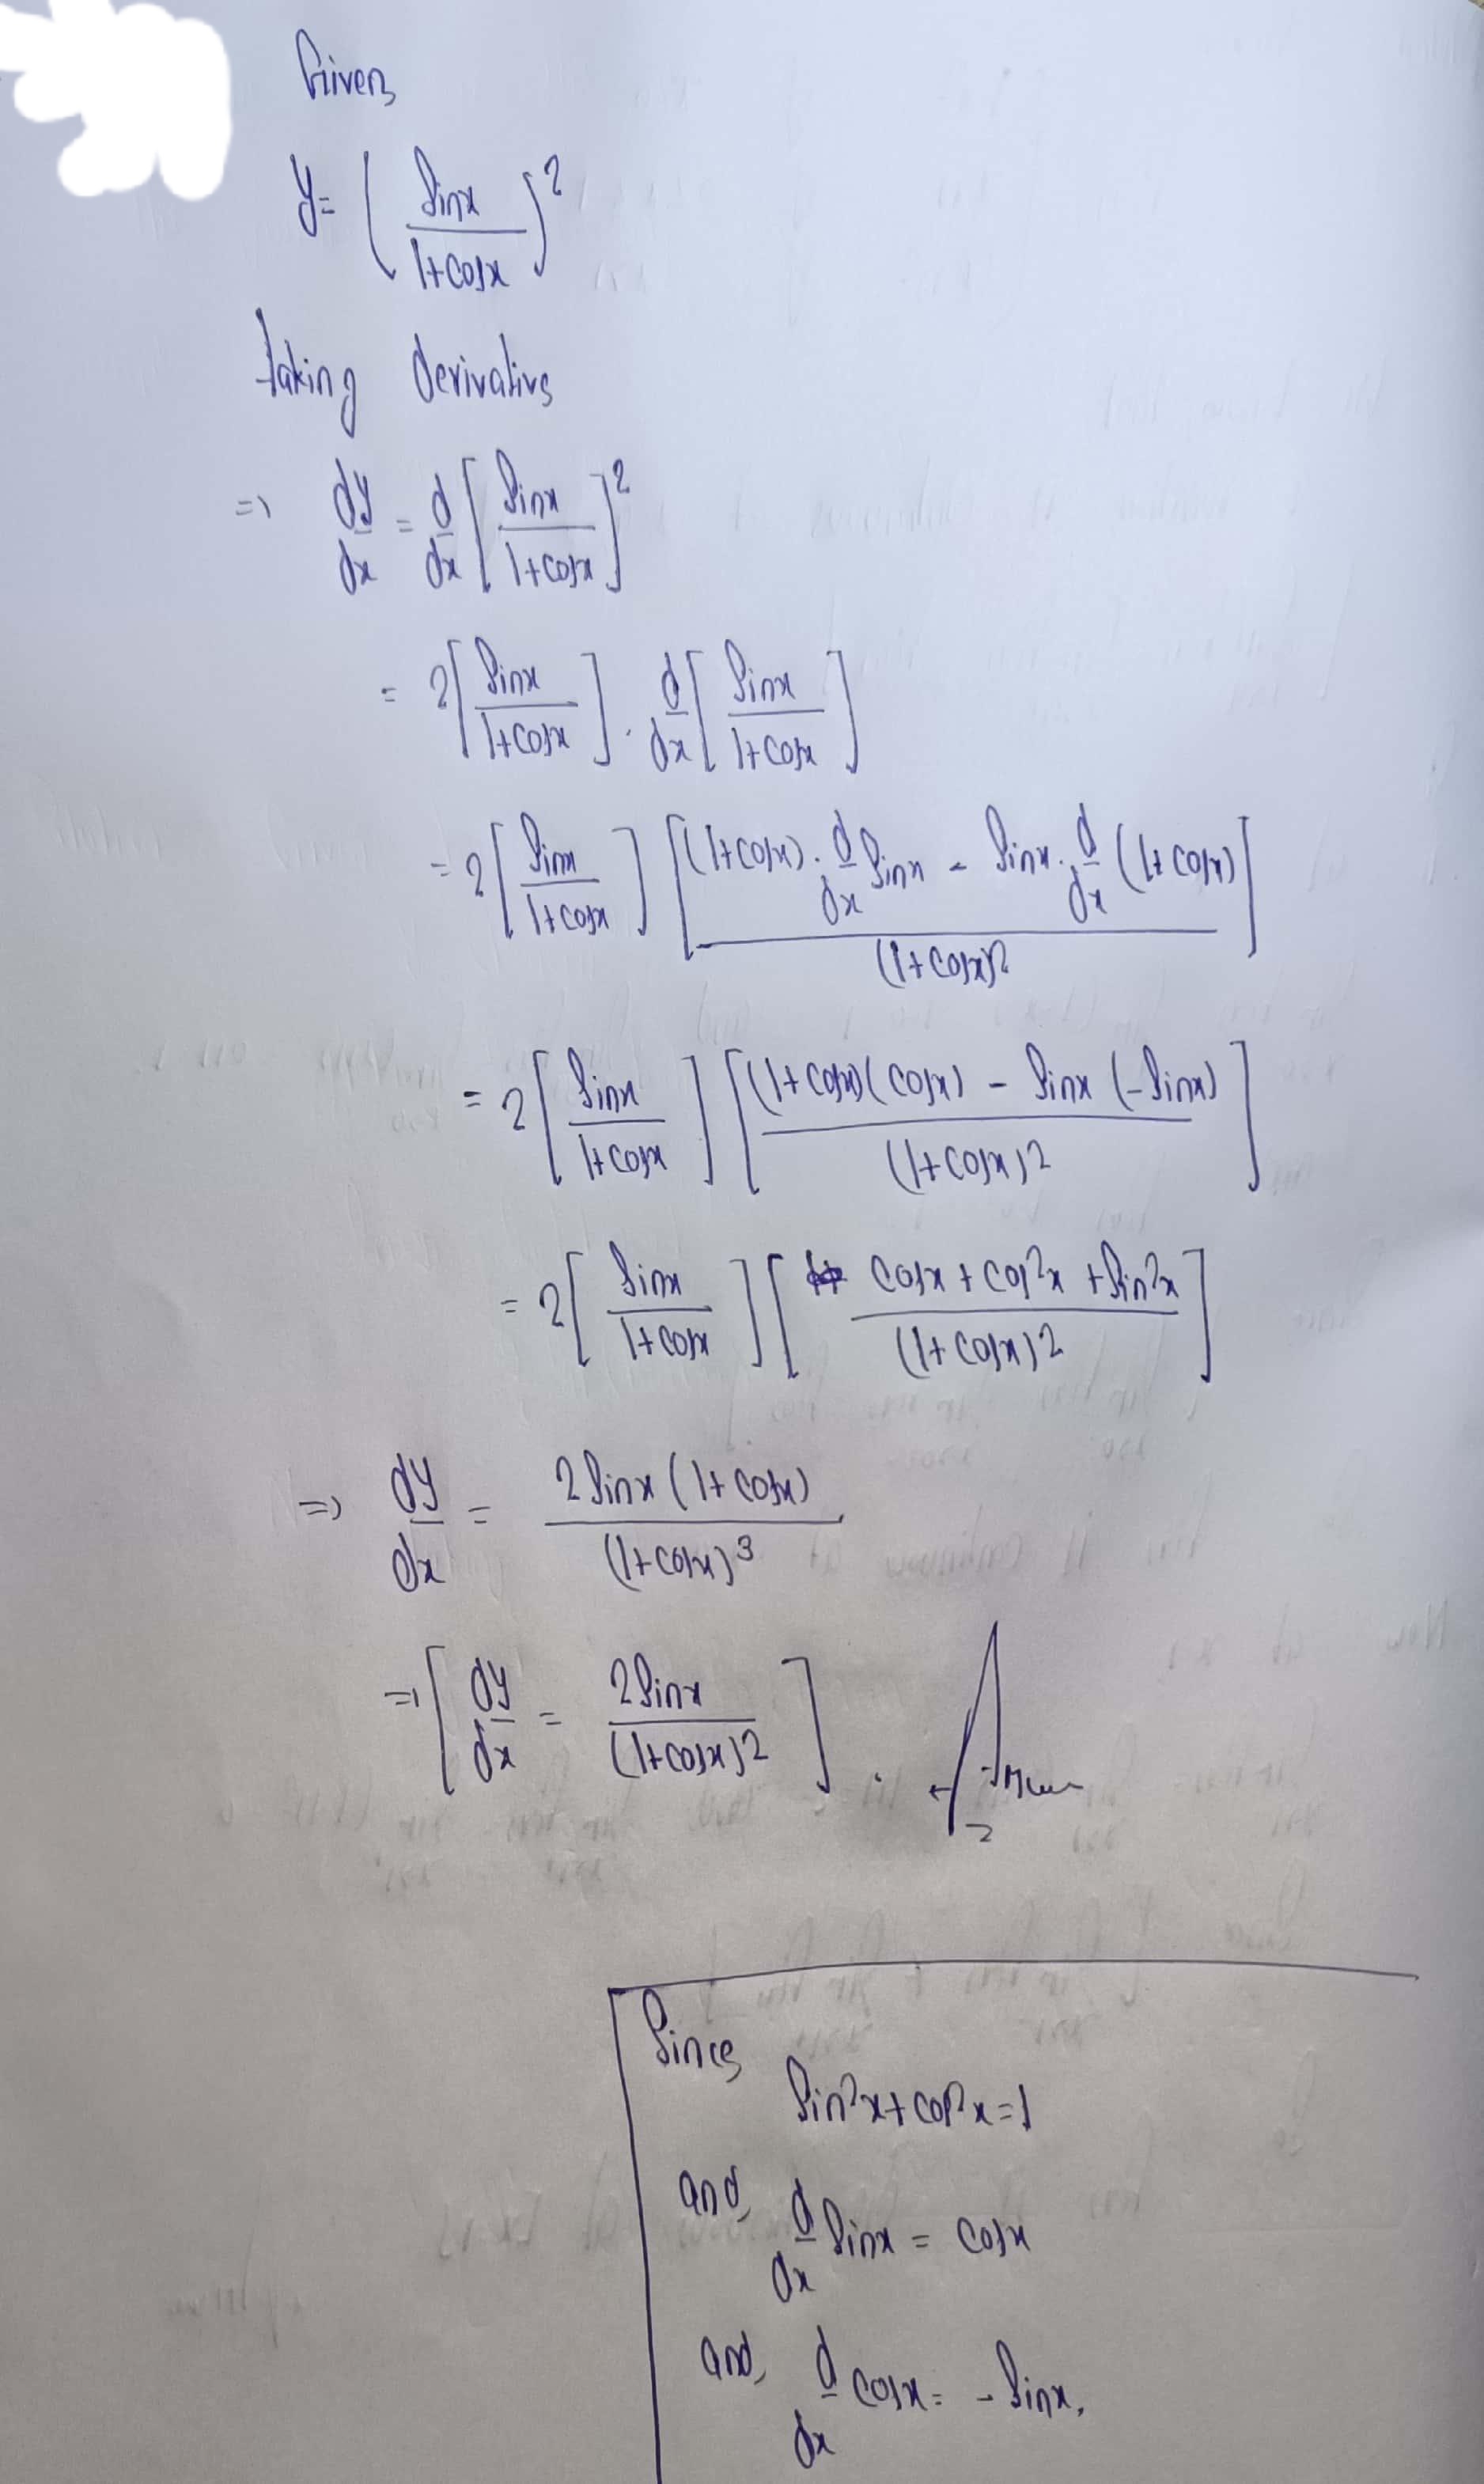 Given,
y = ( sinx / 1+cosx )²
taking derivative
=> dy/dx = d/dx [ sinx / 1+cosx ]²
= 2 [ sinx / 1+cosx ] . d/dx [ sinx / 1+cosx ]
= 2 [ sinx / 1+cosx ] [ (1+cosx) . d/dx sinx - sinx . d/dx (1+cosx) / (1+cosx)² ]
= 2 [ sinx / 1+cosx ] [ (1+cosx)(cosx) - sinx (-sinx) / (1+cosx)² ]
= 2 [ sinx / 1+cosx ] [ cosx + cos²x + sin²x / (1+cosx)² ]
=> dy/dx = 2 sinx (1+cosx) / (1+cosx)³
=> [ dy/dx = 2 sinx / (1+cosx)² ] .
Since,
sin²x + cos²x = 1
and, d/dx sinx = cosx
and, d/dx cosx = - sinx.